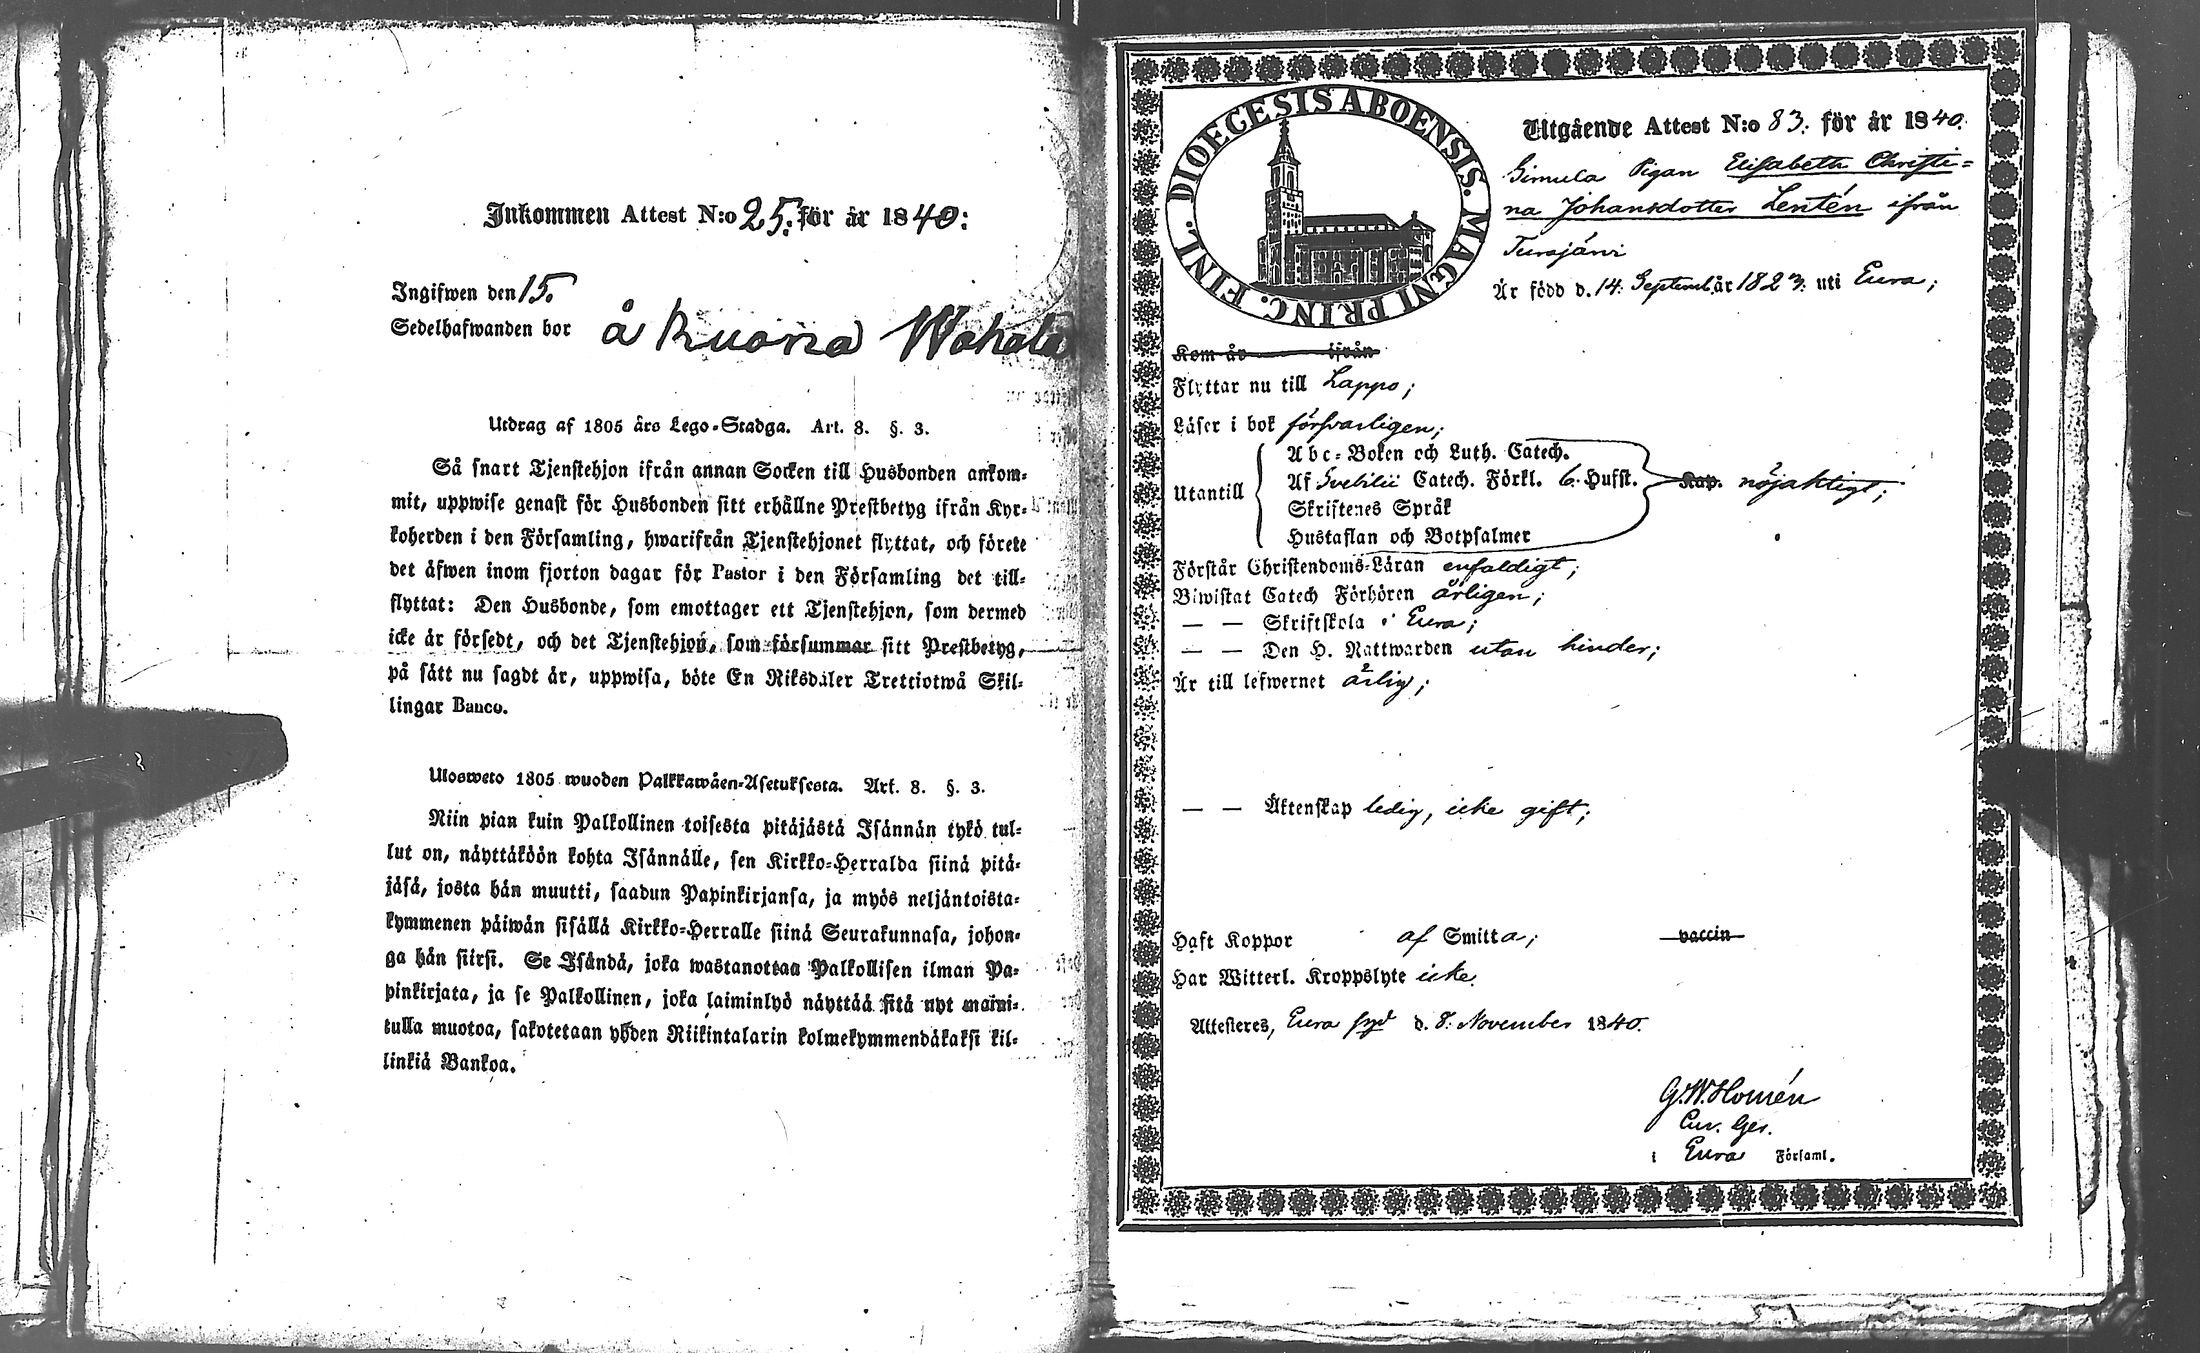 Inkommen Attest N:o 25. för år 1840:
Ingifwen den 15.
Sedelhafwanden bor å Kuona Wahala
Utdrag af 1805 års Lego-Stadga. Art. 8. §. 3.
Så snart Tjenstehjon ifrån annan Socken till Husbonden ankom-
mit, uppwise genast för Husbonden sitt erhållne Prestbetyg ifrån Kyr-
koherden i den Församling, hwarifrån Tjenstehjonet flyttat, och förete
det äfwen inom fjorton dagar för Pastor i den Församling det till-
flyttat: Den Husbonde, som emottager ett Tjenstehjon, som dermed
icke är försedt, och det Tjenstehjon, som försummar sitt Prestbetyg,
på sätt nu sagdt är, uppwisa, böte En Riksdaler Trettiotwå Skil-
lingar Banco.
Ulosweto 1805 wuoden Palkkawäen-Asetuksesta. Art. 8. §. 3.
Niin pian kuin Palkollinen toisesta pitäjästä Isännän tykö tul-
lut on, näyttäköön kohta Isännälle, sen Kirkko-Herralda siinä pitä-
jäsä, josta hän muutti, saadun Papinkirjansa, ja myös neljäntoista-
kymmenen päiwän sisällä Kirkko-Herralle siinä Seurakunnasa, johon-
ga hän siirsi. Se Isändä, joka wastanottaa Palkollisen ilman Pa-
pinkirjata, ja se Palkollinen, joka laiminlyö näyttää sitä nyt maini-
tulla muotoa, sakotetaan yhden Riikintalarin kolmekymmendäkaksi kil-
linkiä Bankoa.
DIOECESIS ABOENSIS. MAGNI PRINC. FINL.
Utgående Attest N:o 83. för år 1840.
Simula Pigan Elisabeth Christi=
na Johansdotter Lentén ifrån
Turajärvi
Är född d. 14. Septemb. år 1823. uti Eura;
Kom år ifrån
Flyttar nu till Lappo;
Läser i bok försvarligen;
Utantill
Abc-Boken och Luth. Catech.
Af Svebilii Catech. Förkl. 6. Hufst. Kap. nöjaktigt;
Skriftenes Språk
Hustaflan och Botpsalmer
Förstår Christendoms-Läran enfaldigt;
Biwistat Catech Förhören årligen;
— — Skriftskola i Eura;
— — Den H. Nattwarden utan hinder;
Är till lefwernet ärlig;
— — Äktenskap ledig, icke gift;
Haft Koppor af Smitta; vaccin
Har Witterl. Kroppslyte icke.
Attesteres, Eura d. 8. November 1840.
G.W.Homén
Cur. Ger.
i Eura Församl.